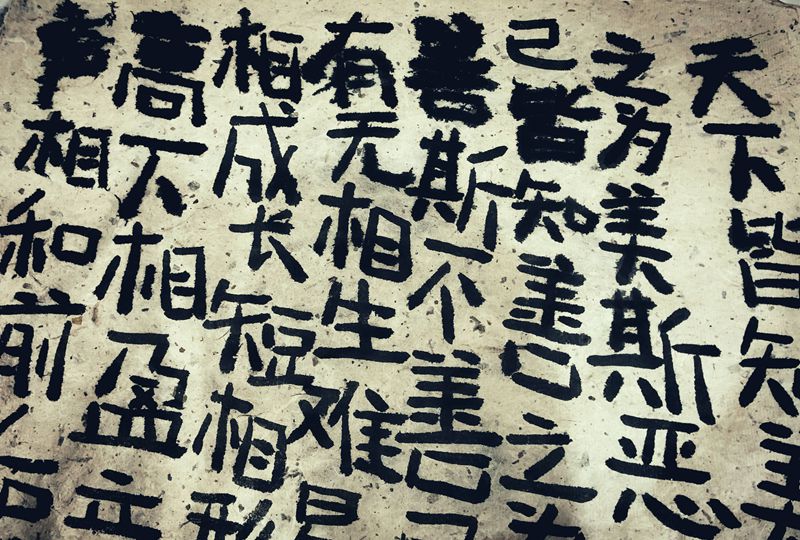 天下皆知美
之为美斯恶
已皆知善之为
善斯不善已
有无相生难易
相成长短相形
高下相盈音
声相和前后